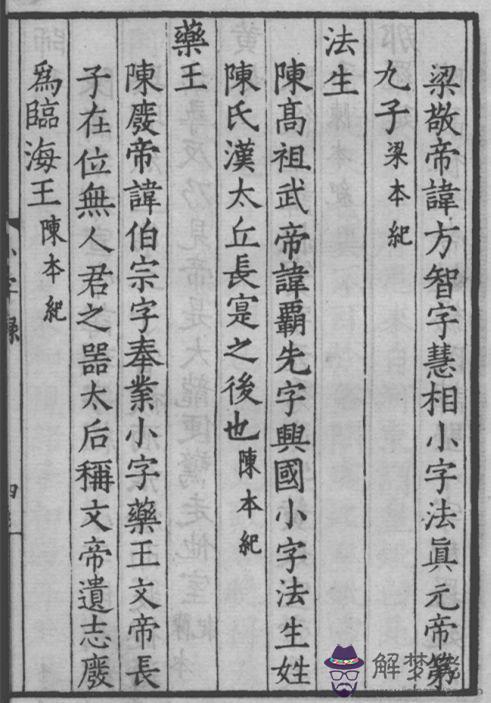 梁敬帝諱方智字慧相小字法眞元帝第
九子梁本紀
法生
陳髙祖武帝諱霸先字興國小字法生姓
陳氏漢太丘長寔之後也陳本紀
藥王
陳廢帝諱伯宗字奉業小字藥王文帝長
子在位無人君之噐太后稱文帝遺志廢
爲臨海王陳本紀
小字錄
四
解梦佬